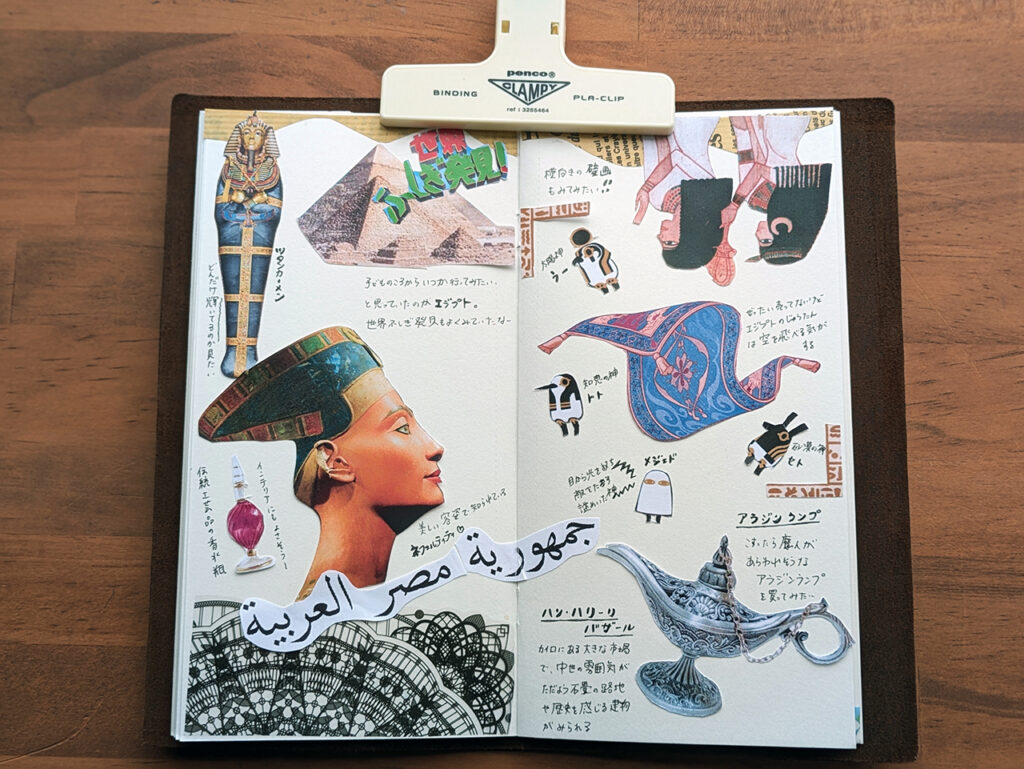 penco®
BINDING
CLAMPY
PLA-CLIP
ref : 3255464
世界
ふしぎ発見!
ツタンカーメン
どんだけ輝いてるのか見たい
子どものころからいつか行ってみたい
と思っていたのがエジプト。
世界ふしぎ発見もよくみていたなー
伝統工芸品の香水瓶
インテリアにもよさそうー
美しい容姿で知られている
ネフェルティティ♡
جمهورية مصر العربية
横向きの壁画
もみてみたい!!
太陽神
ラー
ぜったい売ってないけど
エジプトのじゅうたん
は空を飛べる気が
する
知恵の神
トト
砂漠の神
セト
メジェド
目から光を放ち
敵をたおす
謎めいた神
アラジンランプ
こすったら魔人が
あらわれそうな
アラジンランプ
を買ってみたい
ハン・ハリーリ
バザール
カイロにある大きな市場
で、中世の雰囲気が
ただよう石畳の路地
や歴史を感じる建物
がみられる